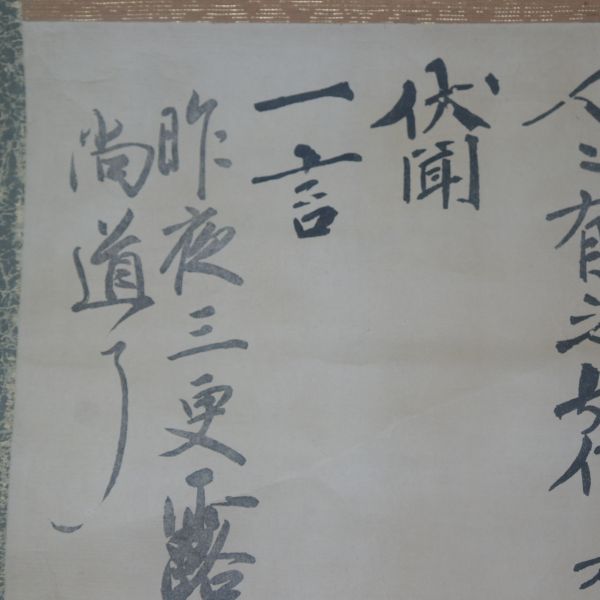 人〻有
伏聞
一言
昨夜三更露
尚道了